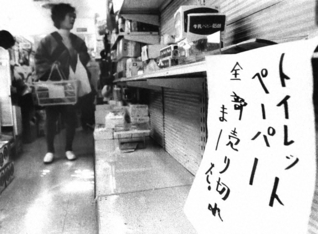 トイレット
ペーパー
全部売り切れ